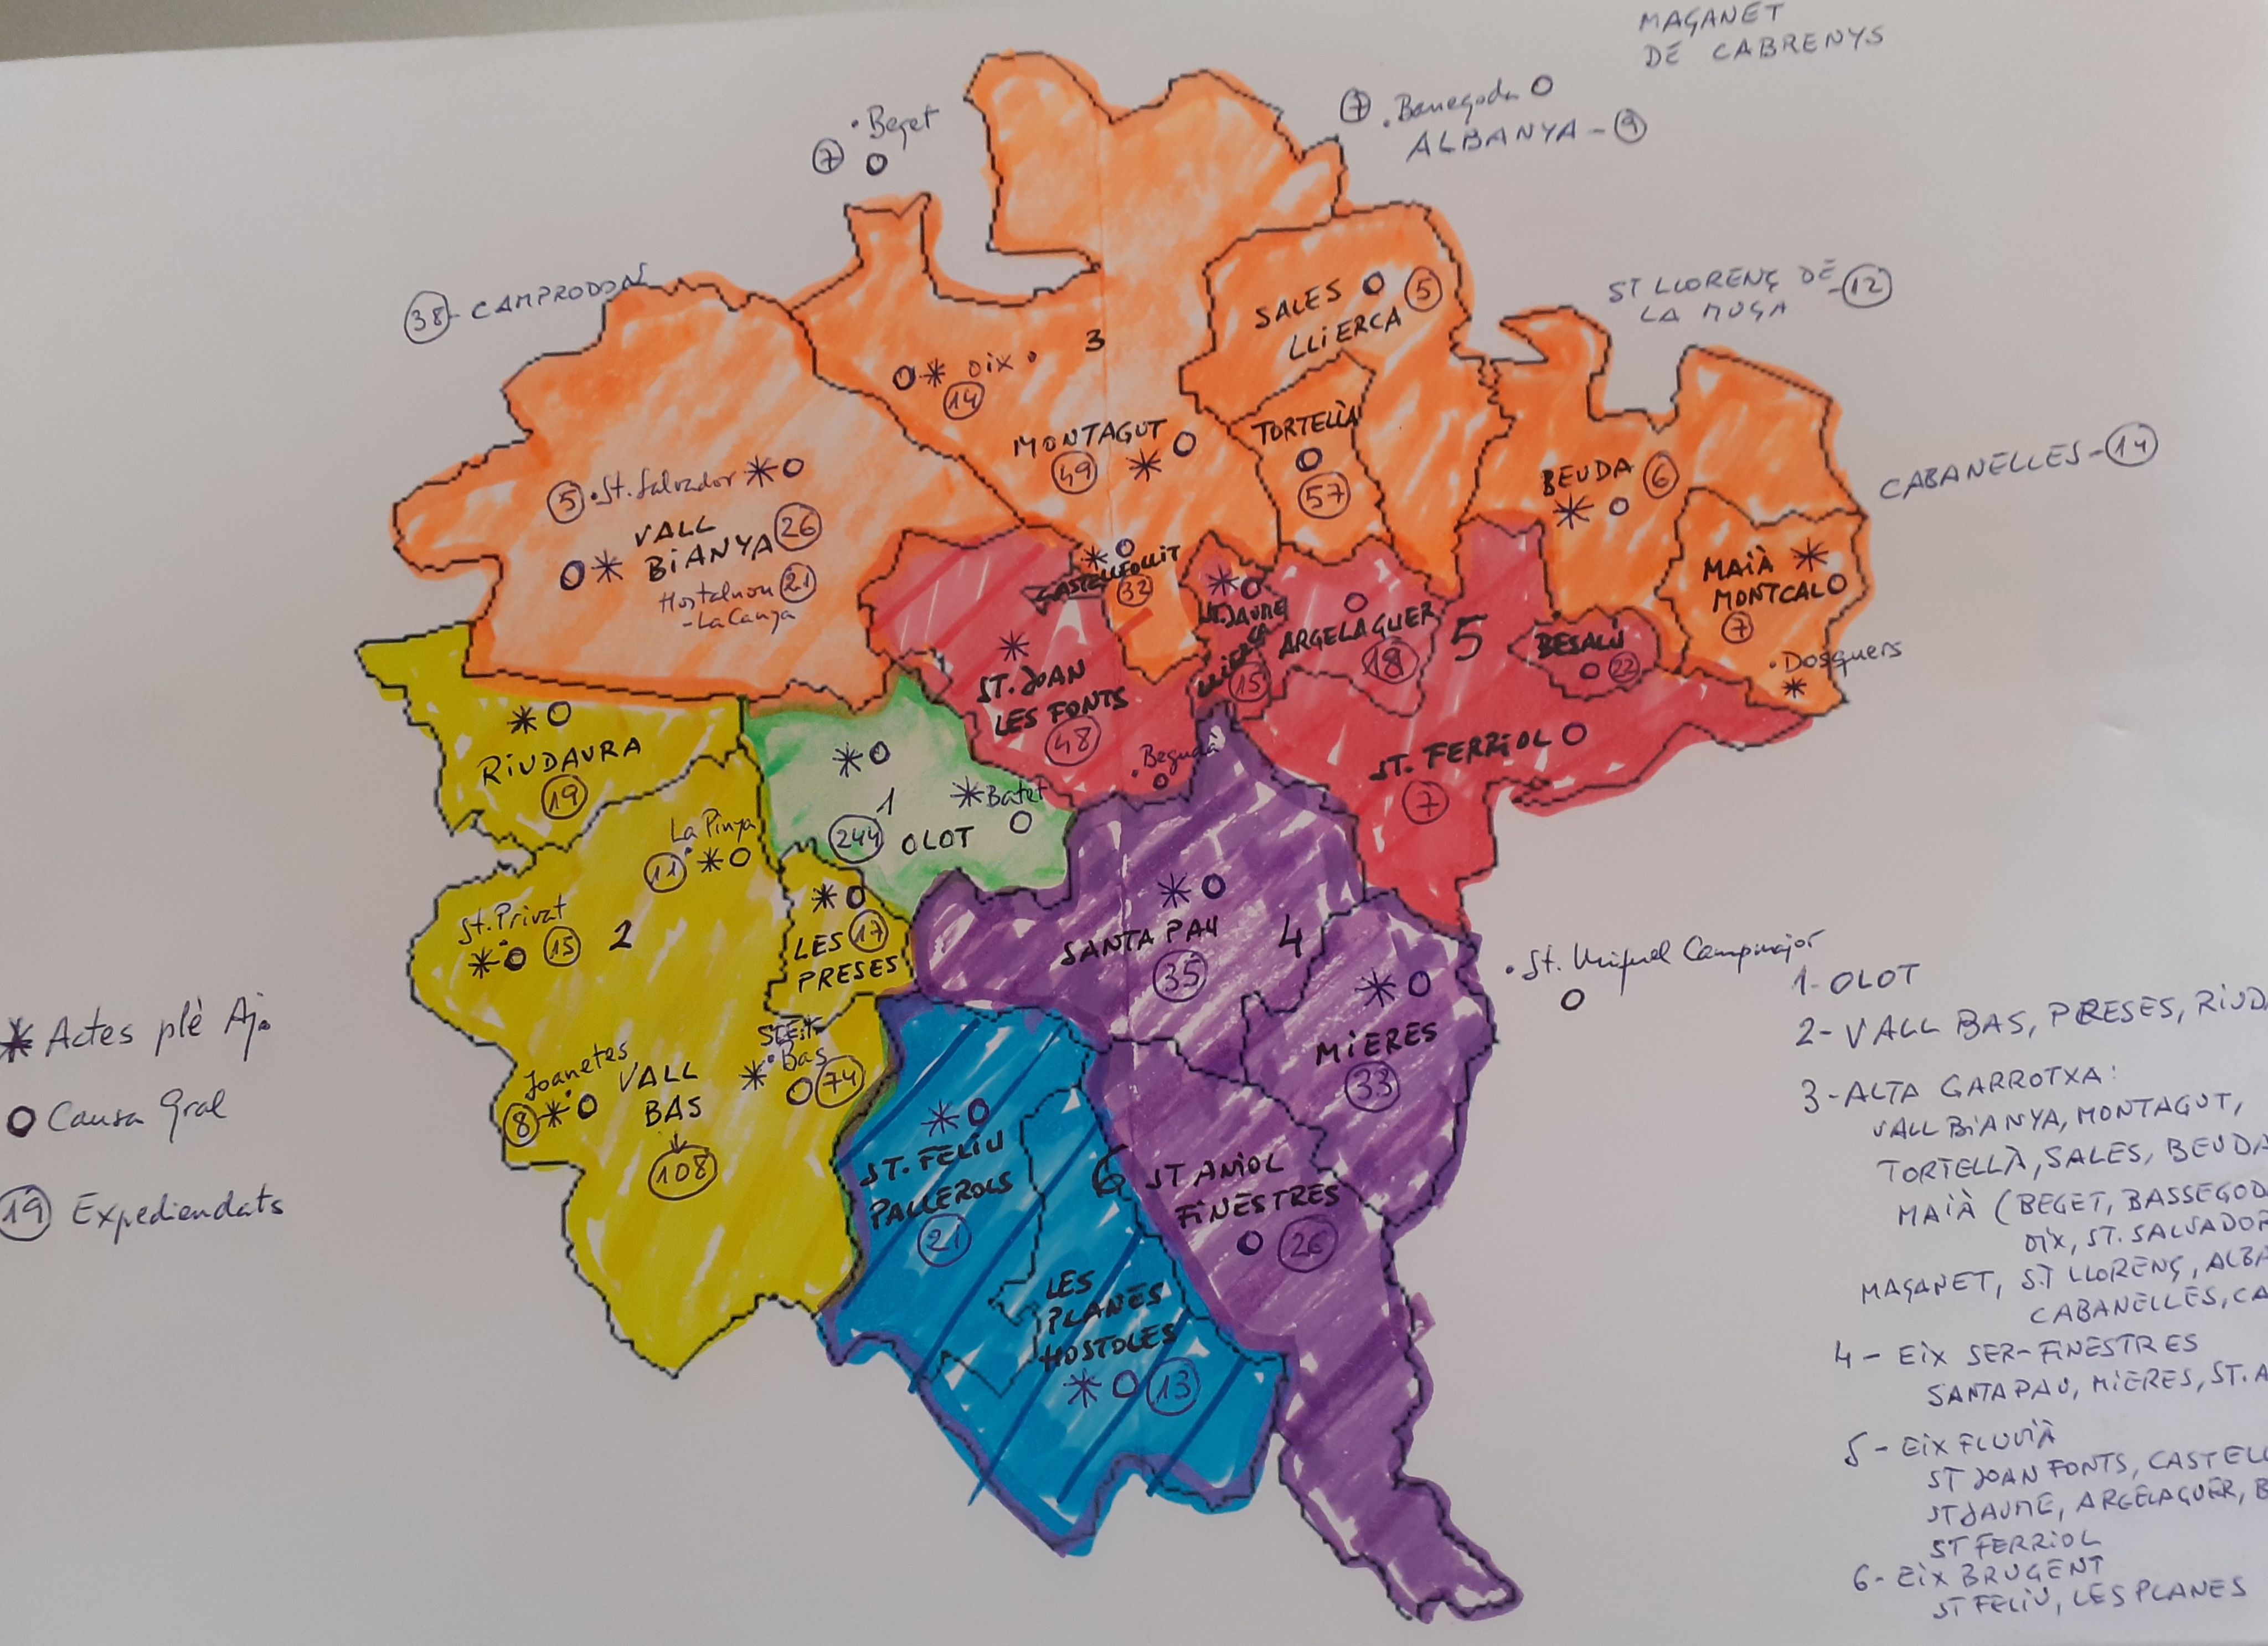 MAÇANET
DE CABRENYS
⑦ Beget
⑦ Bassegoda
ALBANYA - ⑨
㊳ - CAMPRODON
ST LLORENÇ DE - ⑫
LA MUGA
CABANELLES - ⑭
SALES ⑤
LLIERCA
3
OIX
⑭
MONTAGUT
㊾
TORTELLÀ
57
BEUDA ⑥
MAIÀ
MONTCAL
⑦
Dosquers
⑤ St. Salvador
VALL ㉖
BIANYA
Hostalnou ㉑
- La Canya
CASTELLFOLLIT
㉜
ST. JAUME
LLIERCA
⑮
ARGELAGUER
⑱
5
BESALÚ
㉒
ST. JOAN
LES FONTS
㊽
Begudà
ST. FERRIOL
⑦
RIUDAURA
⑲
1
Batet
244 OLOT
La Pinya
⑪
St. Privat
⑮
2
LES ⑰
PRESES
SANTA PAU
㉟
4
MIERES
㉝
St. Miquel Campmajor
Joanetes
⑧
VALL
BAS
108
ST. EST.
Bas
74
ST. FELIU
PALLEROLS
㉑
6
ST ANIOL
FINESTRES
㉖
LES
PLANES
HOSTOLES
⑬
Actes plè Aj.
Causa Gral
⑲ Expediendats
1- OLOT
2- VALL BAS, PRESES, RIUD
3- ALTA GARROTXA:
VALL BIANYA, MONTAGUT,
TORTELLÀ, SALES, BEUDA
MAIÀ (BEGET, BASSEGOD
OIX, ST. SALVADOR
MAÇANET, ST LLORENÇ, ALBA
CABANELLES, CA
4 - EIX SER-FINESTRES
SANTA PAU, MIERES, ST. A
5 - EIX FLUVIÀ
ST JOAN FONTS, CASTELL
ST JAUME, ARGELAGUER, B
ST FERRIOL
6- EIX BRUGENT
ST FELIU, LES PLANES